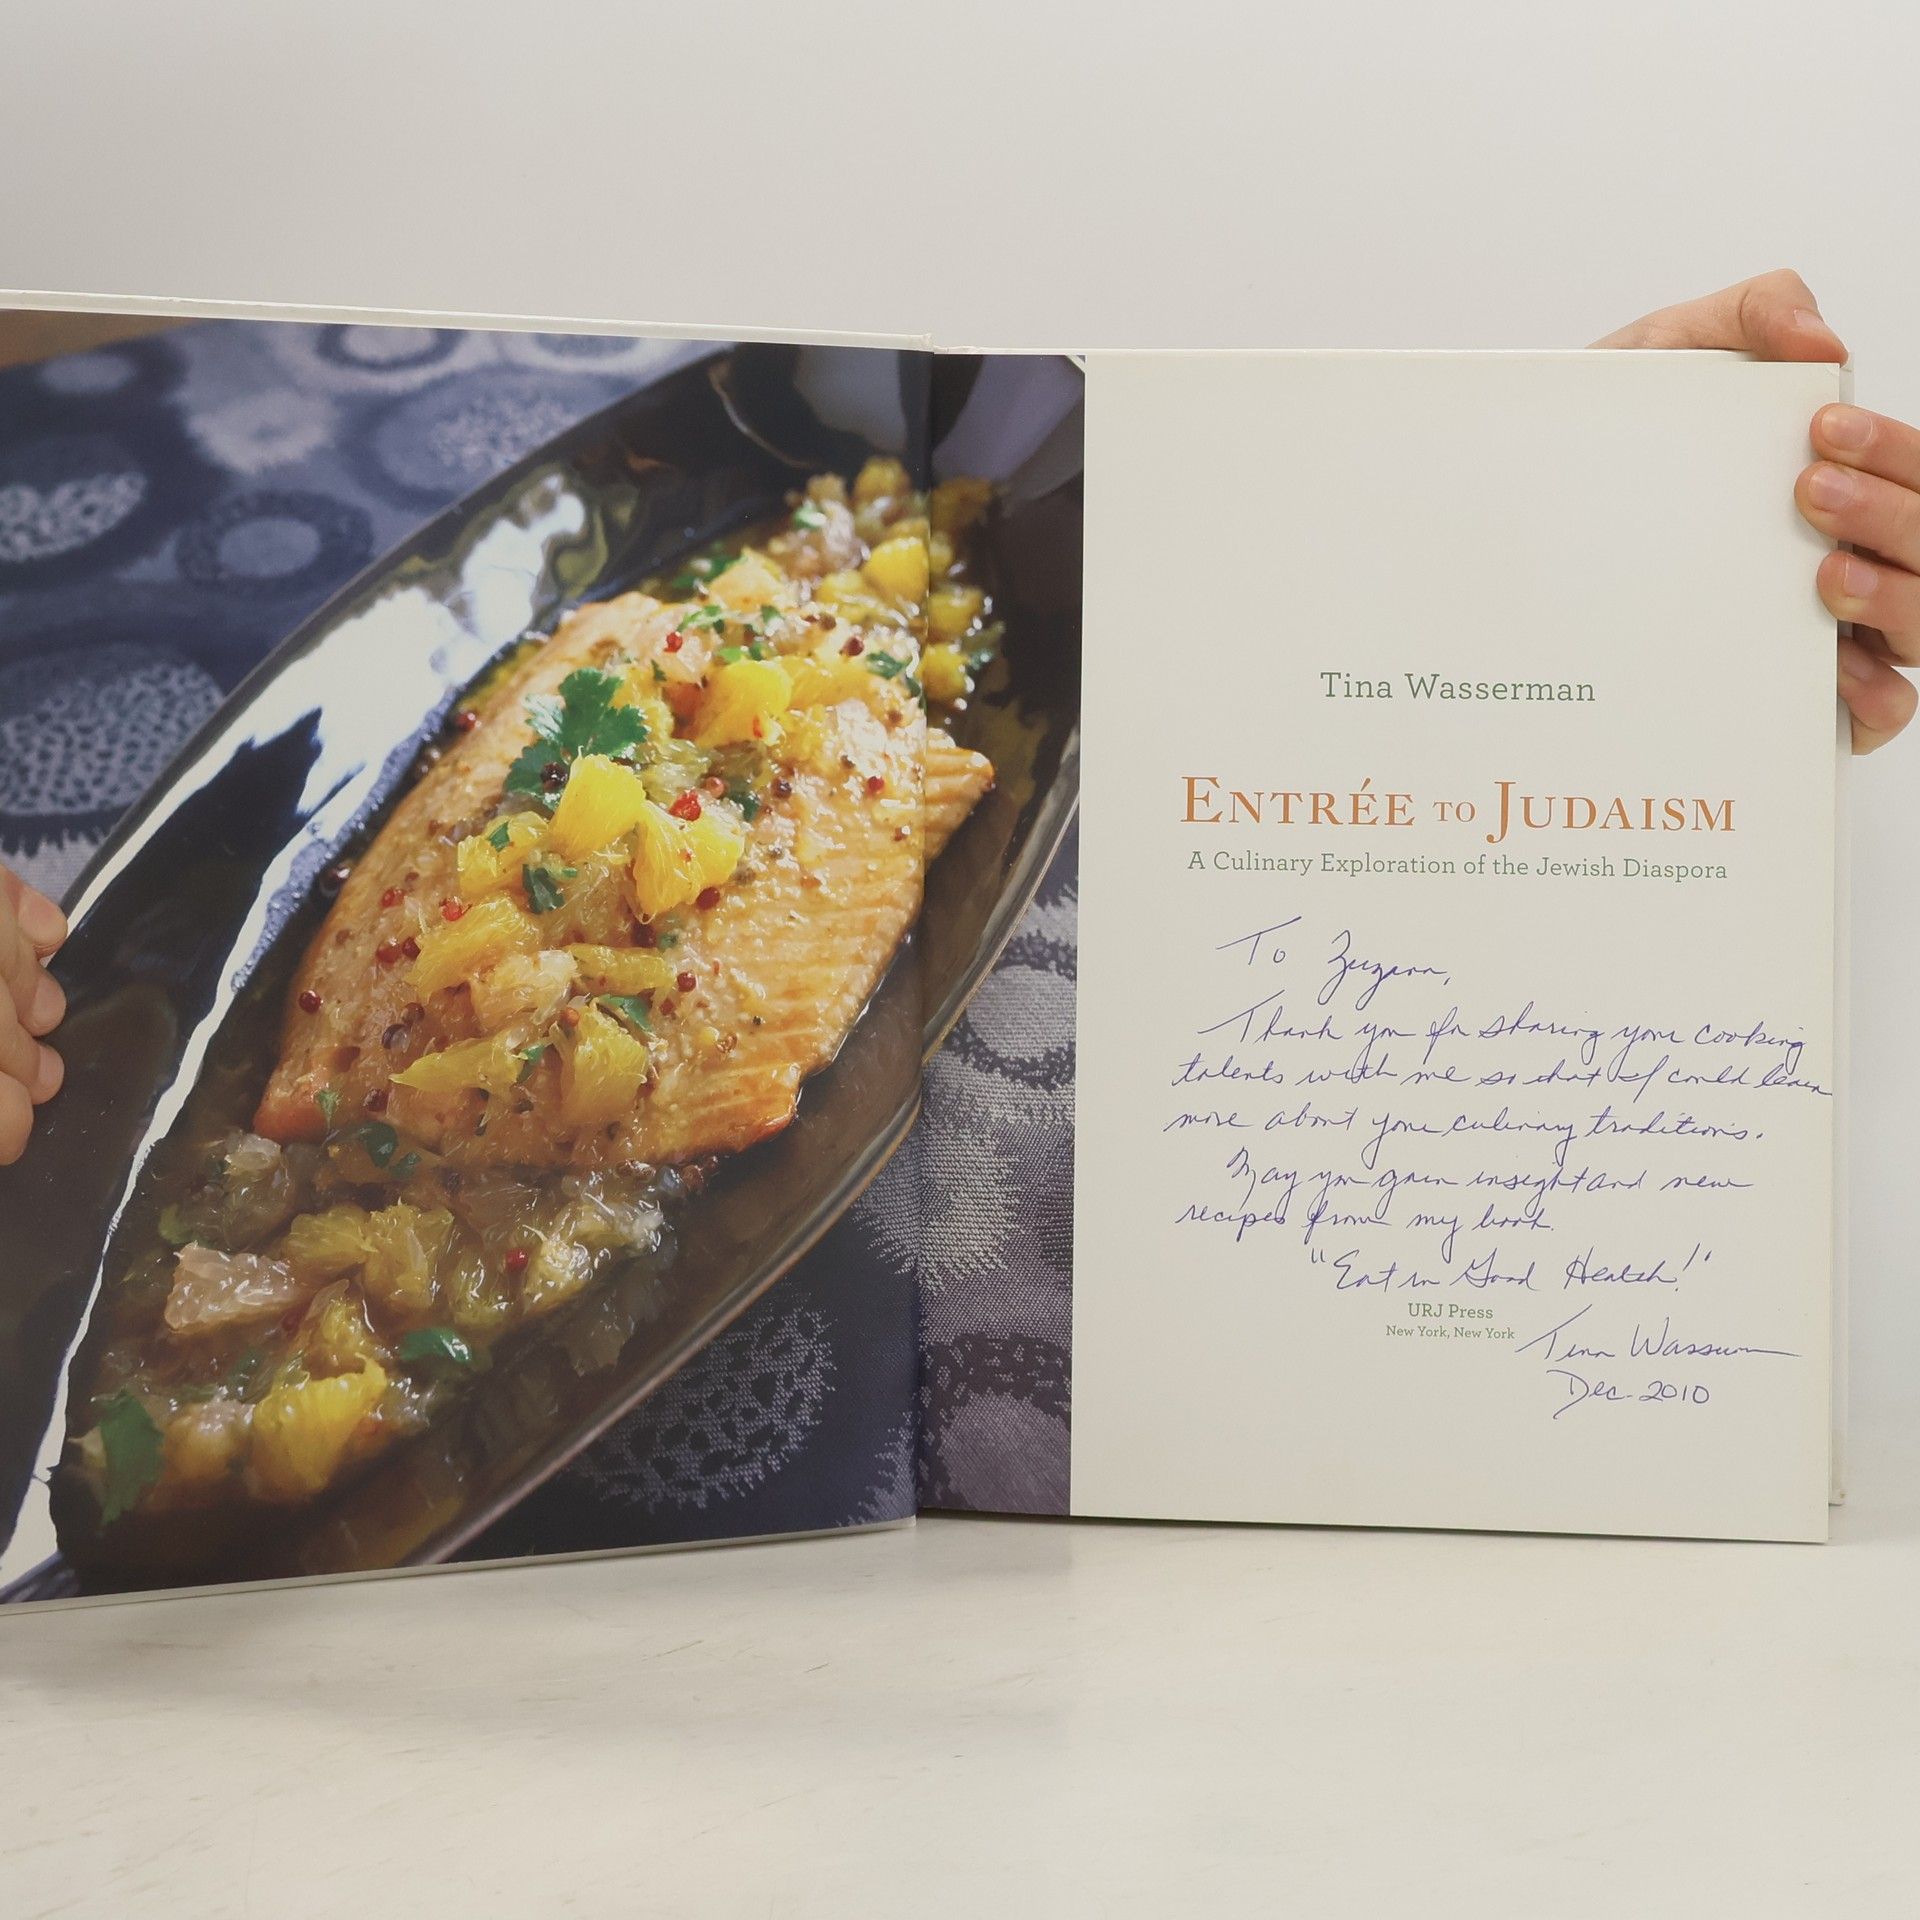 Tina Wasserman
ENTRÉE TO JUDAISM
A Culinary Exploration of the Jewish Diaspora
To Zuzana,
Thank you for sharing your cooking
talents with me so that I could learn
more about your culinary traditions.
May you gain insight and new
recipes from my book.
"Eat in Good Health!"
URJ Press
New York, New York
Tina Wasserman
Dec. 2010